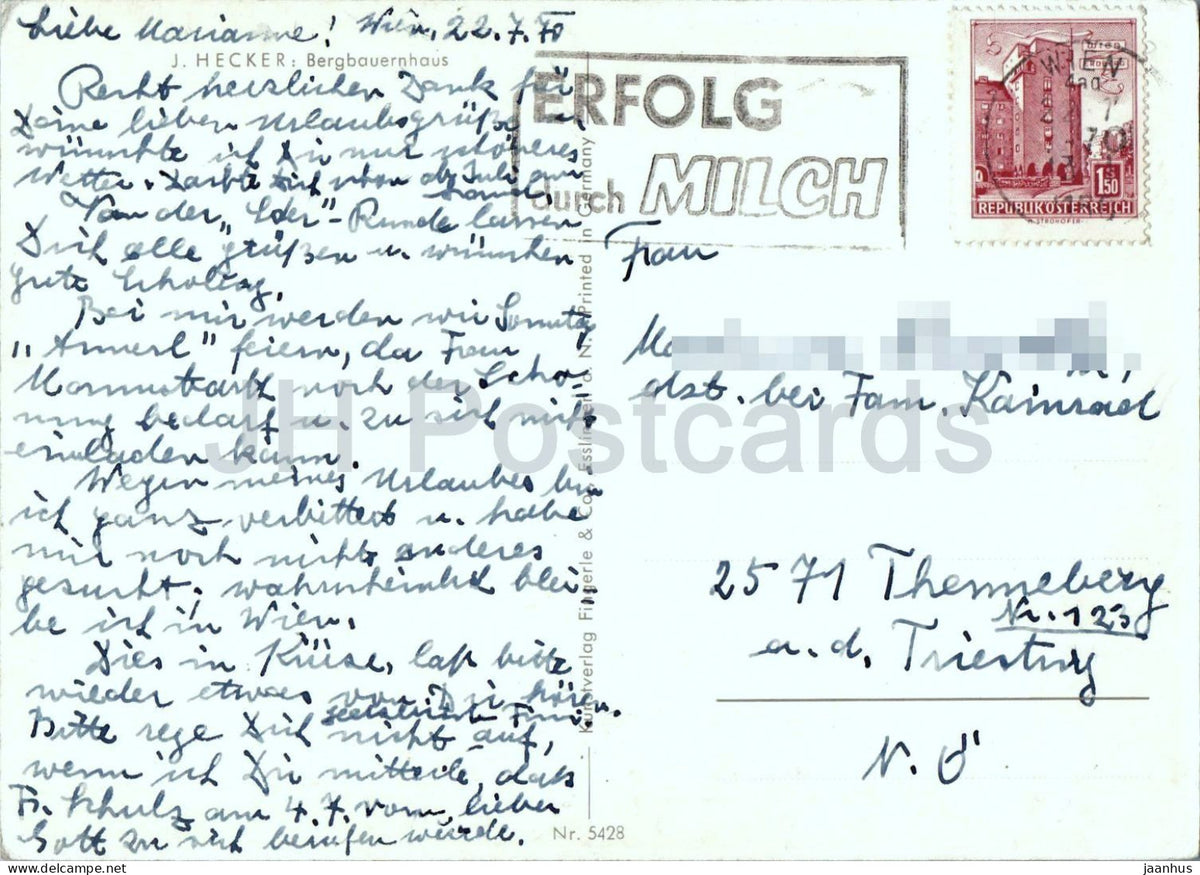 Liebe Marianne! Wien, 22.7.70
J. HECKER: Bergbauernhaus
Recht herzlichen Dank für
Deine lieben Urlaubsgrüße u.
wünschte ich Dir nur schöneres
Wetter. Dachte Dich schon ab Juli am
Land.
Von der "Eder"-Runde lassen
Dich alle grüßen u. wünschen
gute Erholung.
Bei mir werden wir Sonntag
"Annerl" feiern, da Frau
noch der Scho-
nung bedarf u. zu sich nicht
einladen kann.
Wegen meines Urlaubes bin
ich ganz verbittert u. habe
mir noch nichts anderes
gesucht, wahrscheinlich blei-
be ich in Wien.
Dies in Kürze, laß bitte
wieder etwas von Dir hören.
Herzlichst Fini.
Bitte rege Dich nicht auf,
wenn ich Dir mitteile, daß
Fr. Schulz am 4.7. vom lieben
Gott zu sich berufen wurde.
Kunstverlag Fingerle & Co., Esslingen a. N. Printed in Germany
Nr. 5428
ERFOLG
durch MILCH
WIEN
REPUBLIK ÖSTERREICH
S 1.50
Frau
dzt. bei Fam. Kainrad
2571 Thenneberg
Nr. 123
a.d. Triesting
N.Ö
JH Postcards
jaanhus — www.delcampe.net